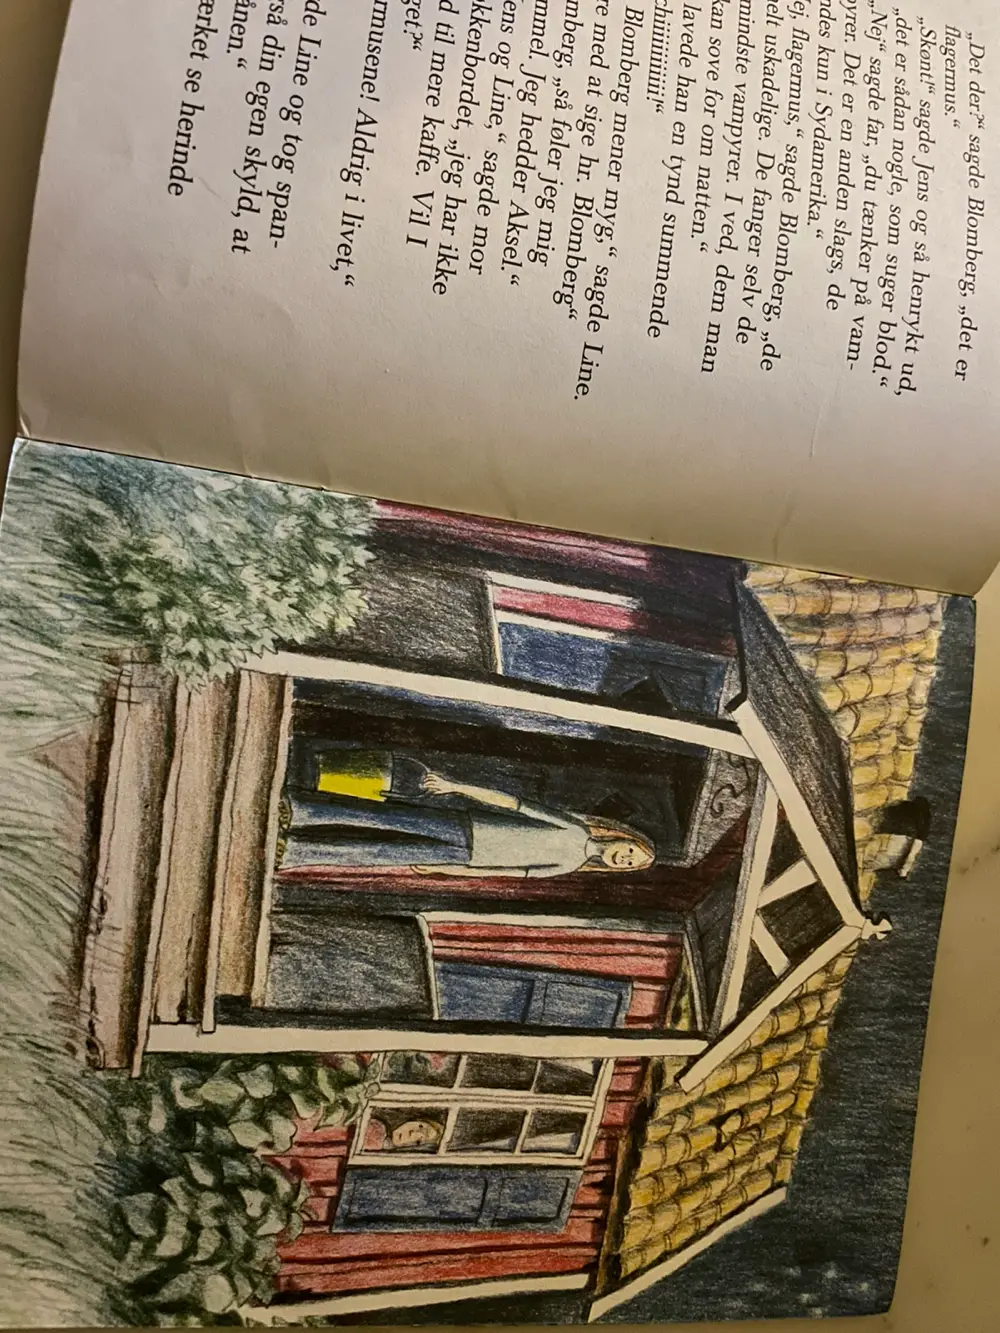 „Det der?“ sagde Blomberg, „det er
flagermus.“
„Skønt!“ sagde Jens og så henrykt ud,
„det er sådan nogle, som suger blod.“
„Nej“ sagde far, „du tænker på vam-
pyrer. Det er en anden slags, de
ndes kun i Sydamerika.“
ej, flagermus,“ sagde Blomberg, „de
helt uskadelige. De fanger selv de
mindste vampyrer. I ved, dem man
kan sove for om natten.“
lavede han en tynd summende
Blomberg mener myg,“ sagde Line.
re med at sige hr. Blomberg“
mberg, „så føler jeg mig
mmel. Jeg hedder Aksel.“
ens og Line,“ sagde mor
kkenbordet, „jeg har ikke
d til mere kaffe. Vil I
get?“
rmusene! Aldrig i livet,“
de Line og tog span-
rså din egen skyld, at
ånen.“
ærket se herinde